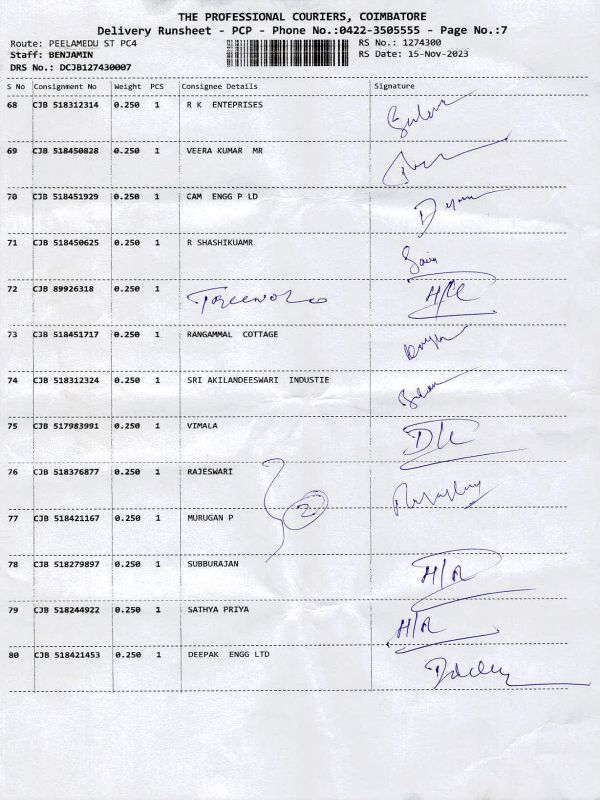 THE PROFESSIONAL COURIERS, COIMBATORE
Delivery Runsheet - PCP - Phone No.:0422-3505555 - Page No.:7
Route: PEELAMEDU ST PC4 RS No.: 1274300
Staff: BENJAMIN RS Date: 15-Nov-2023
DRS No.: DCJB127430007
S No Consignment No Weight PCS Consignee Details Signature
68 CJB 518312314 0.250 1 R K ENTEPRISES
69 CJB 518450828 0.250 1 VEERA KUMAR MR
70 CJB 518451929 0.250 1 CAM ENGG P LD
71 CJB 518450625 0.250 1 R SHASHIKUAMR
72 CJB 89926318 0.250 1
73 CJB 518451717 0.250 1 RANGAMMAL COTTAGE
74 CJB 518312324 0.250 1 SRI AKILANDEESWARI INDUSTIE
75 CJB 517983991 0.250 1 VIMALA
76 CJB 518376877 0.250 1 RAJESWARI
2
77 CJB 518421167 0.250 1 MURUGAN P
78 CJB 518279897 0.250 1 SUBBURAJAN H/R
79 CJB 518244922 0.250 1 SATHYA PRIYA H/R
80 CJB 518421453 0.250 1 DEEPAK ENGG LTD